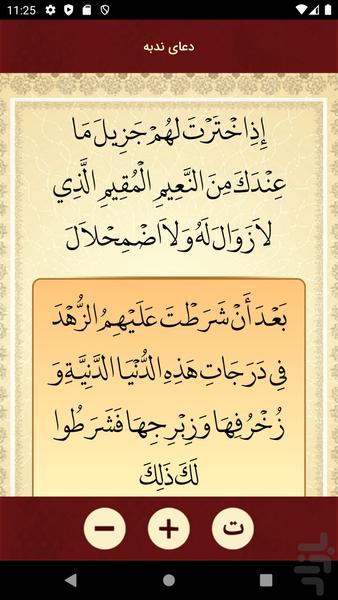 11:25
دعای ندبه
إِذِ اخْتَرْتَ لَهُمْ جَزِيلَ مَا
عِنْدَكَ مِنَ النَّعِيمِ الْمُقِيمِ الَّذِي
لاَ زَوَالَ لَهُ وَلاَ اضْمِحْلاَلَ
بَعْدَ أَنْ شَرَطْتَ عَلَيْهِمُ الزُّهْدَ
فِي دَرَجَاتِ هَذِهِ الدُّنْيَا الدَّنِيَّةِ وَ
زُخْرُفِهَا وَ زِبْرِجِهَا فَشَرَطُوا
لَكَ ذَلِكَ
− + ت
بازار